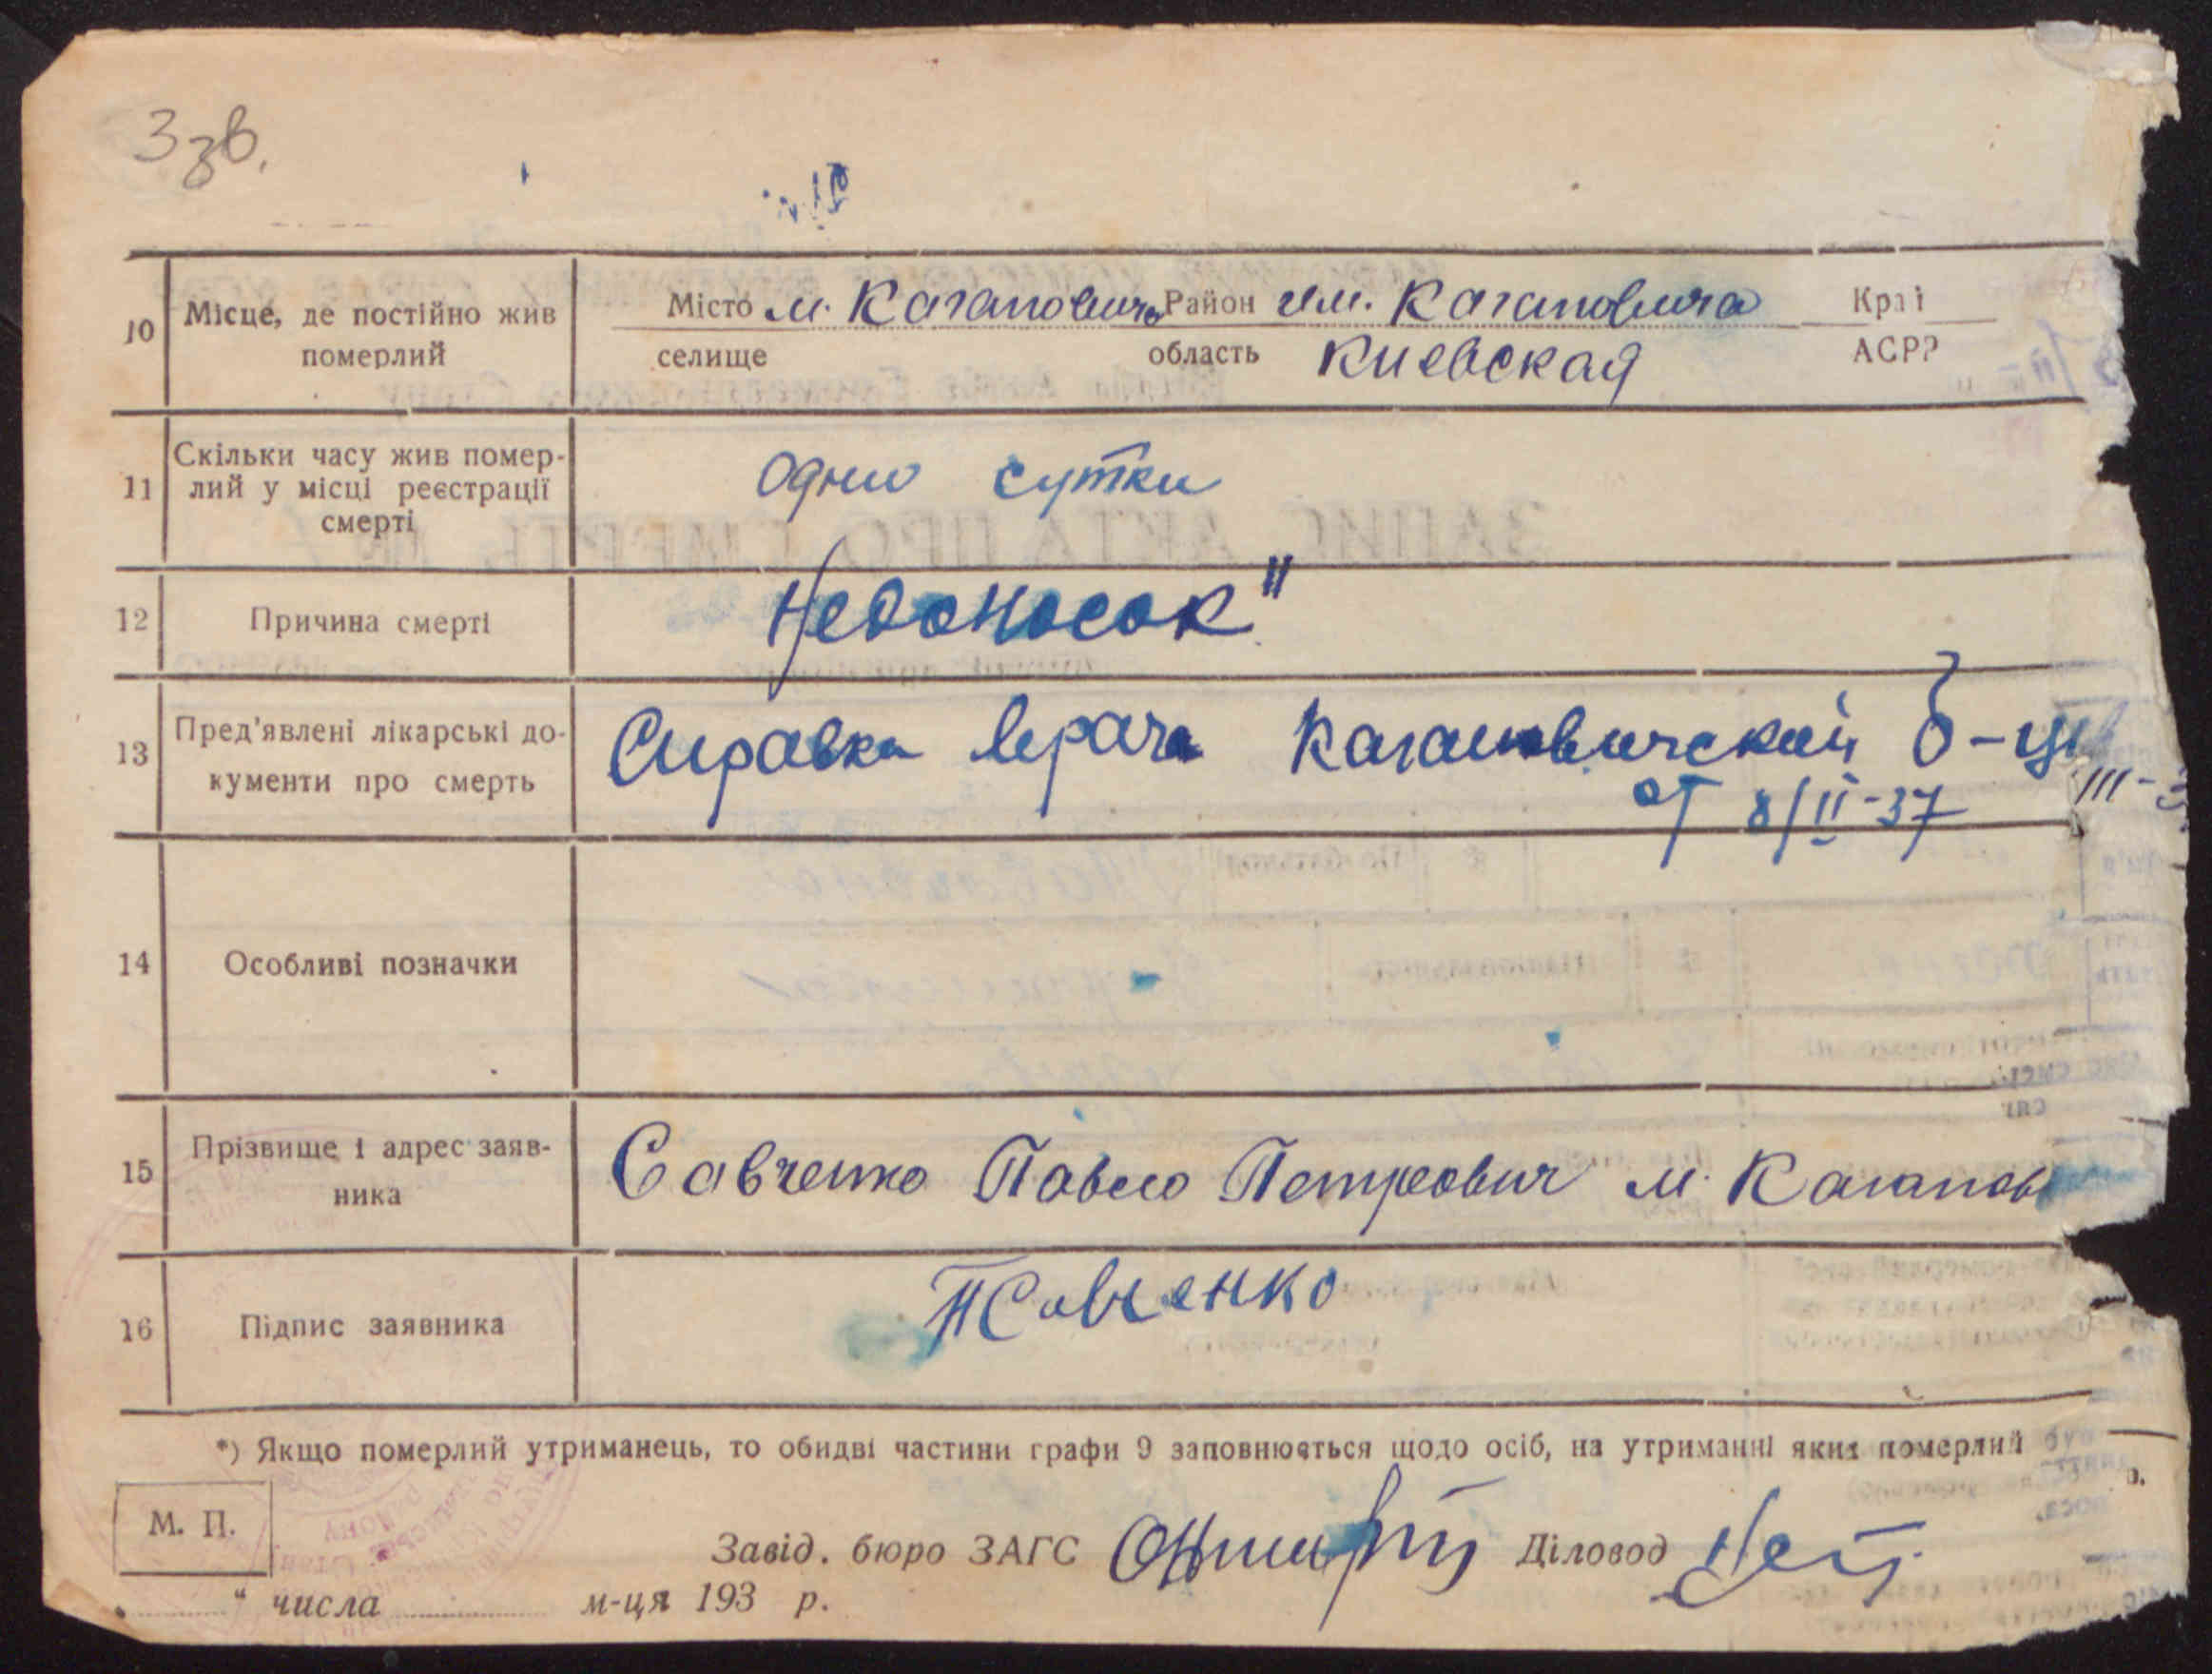 3 зв.
10 Місце, де постійно жив померлий
Місто м. Кагановича Район им. Кагановича Край
селище область Киевская АСРР
11 Скільки часу жив помер-
лий у місці реєстрації
смерті
одни сутки
12 Причина смерті
Недоносок"
13 Пред'явлені лікарські до-
кументи про смерть
Справка врача Кагановической б-цы
от 8/II-37
III-3
14 Особливі позначки
15 Прізвище і адрес заяв-
ника
Савченко Павло Петрович м. Каганов
16 Підпис заявника
ПСавченко
*) Якщо померлий утриманець, то обидві частини графи 9 заповнюються щодо осіб, на утриманні яких померлий
М. П.
Завід. бюро ЗАГС Діловод
„ “ числа м-ця 193 р.